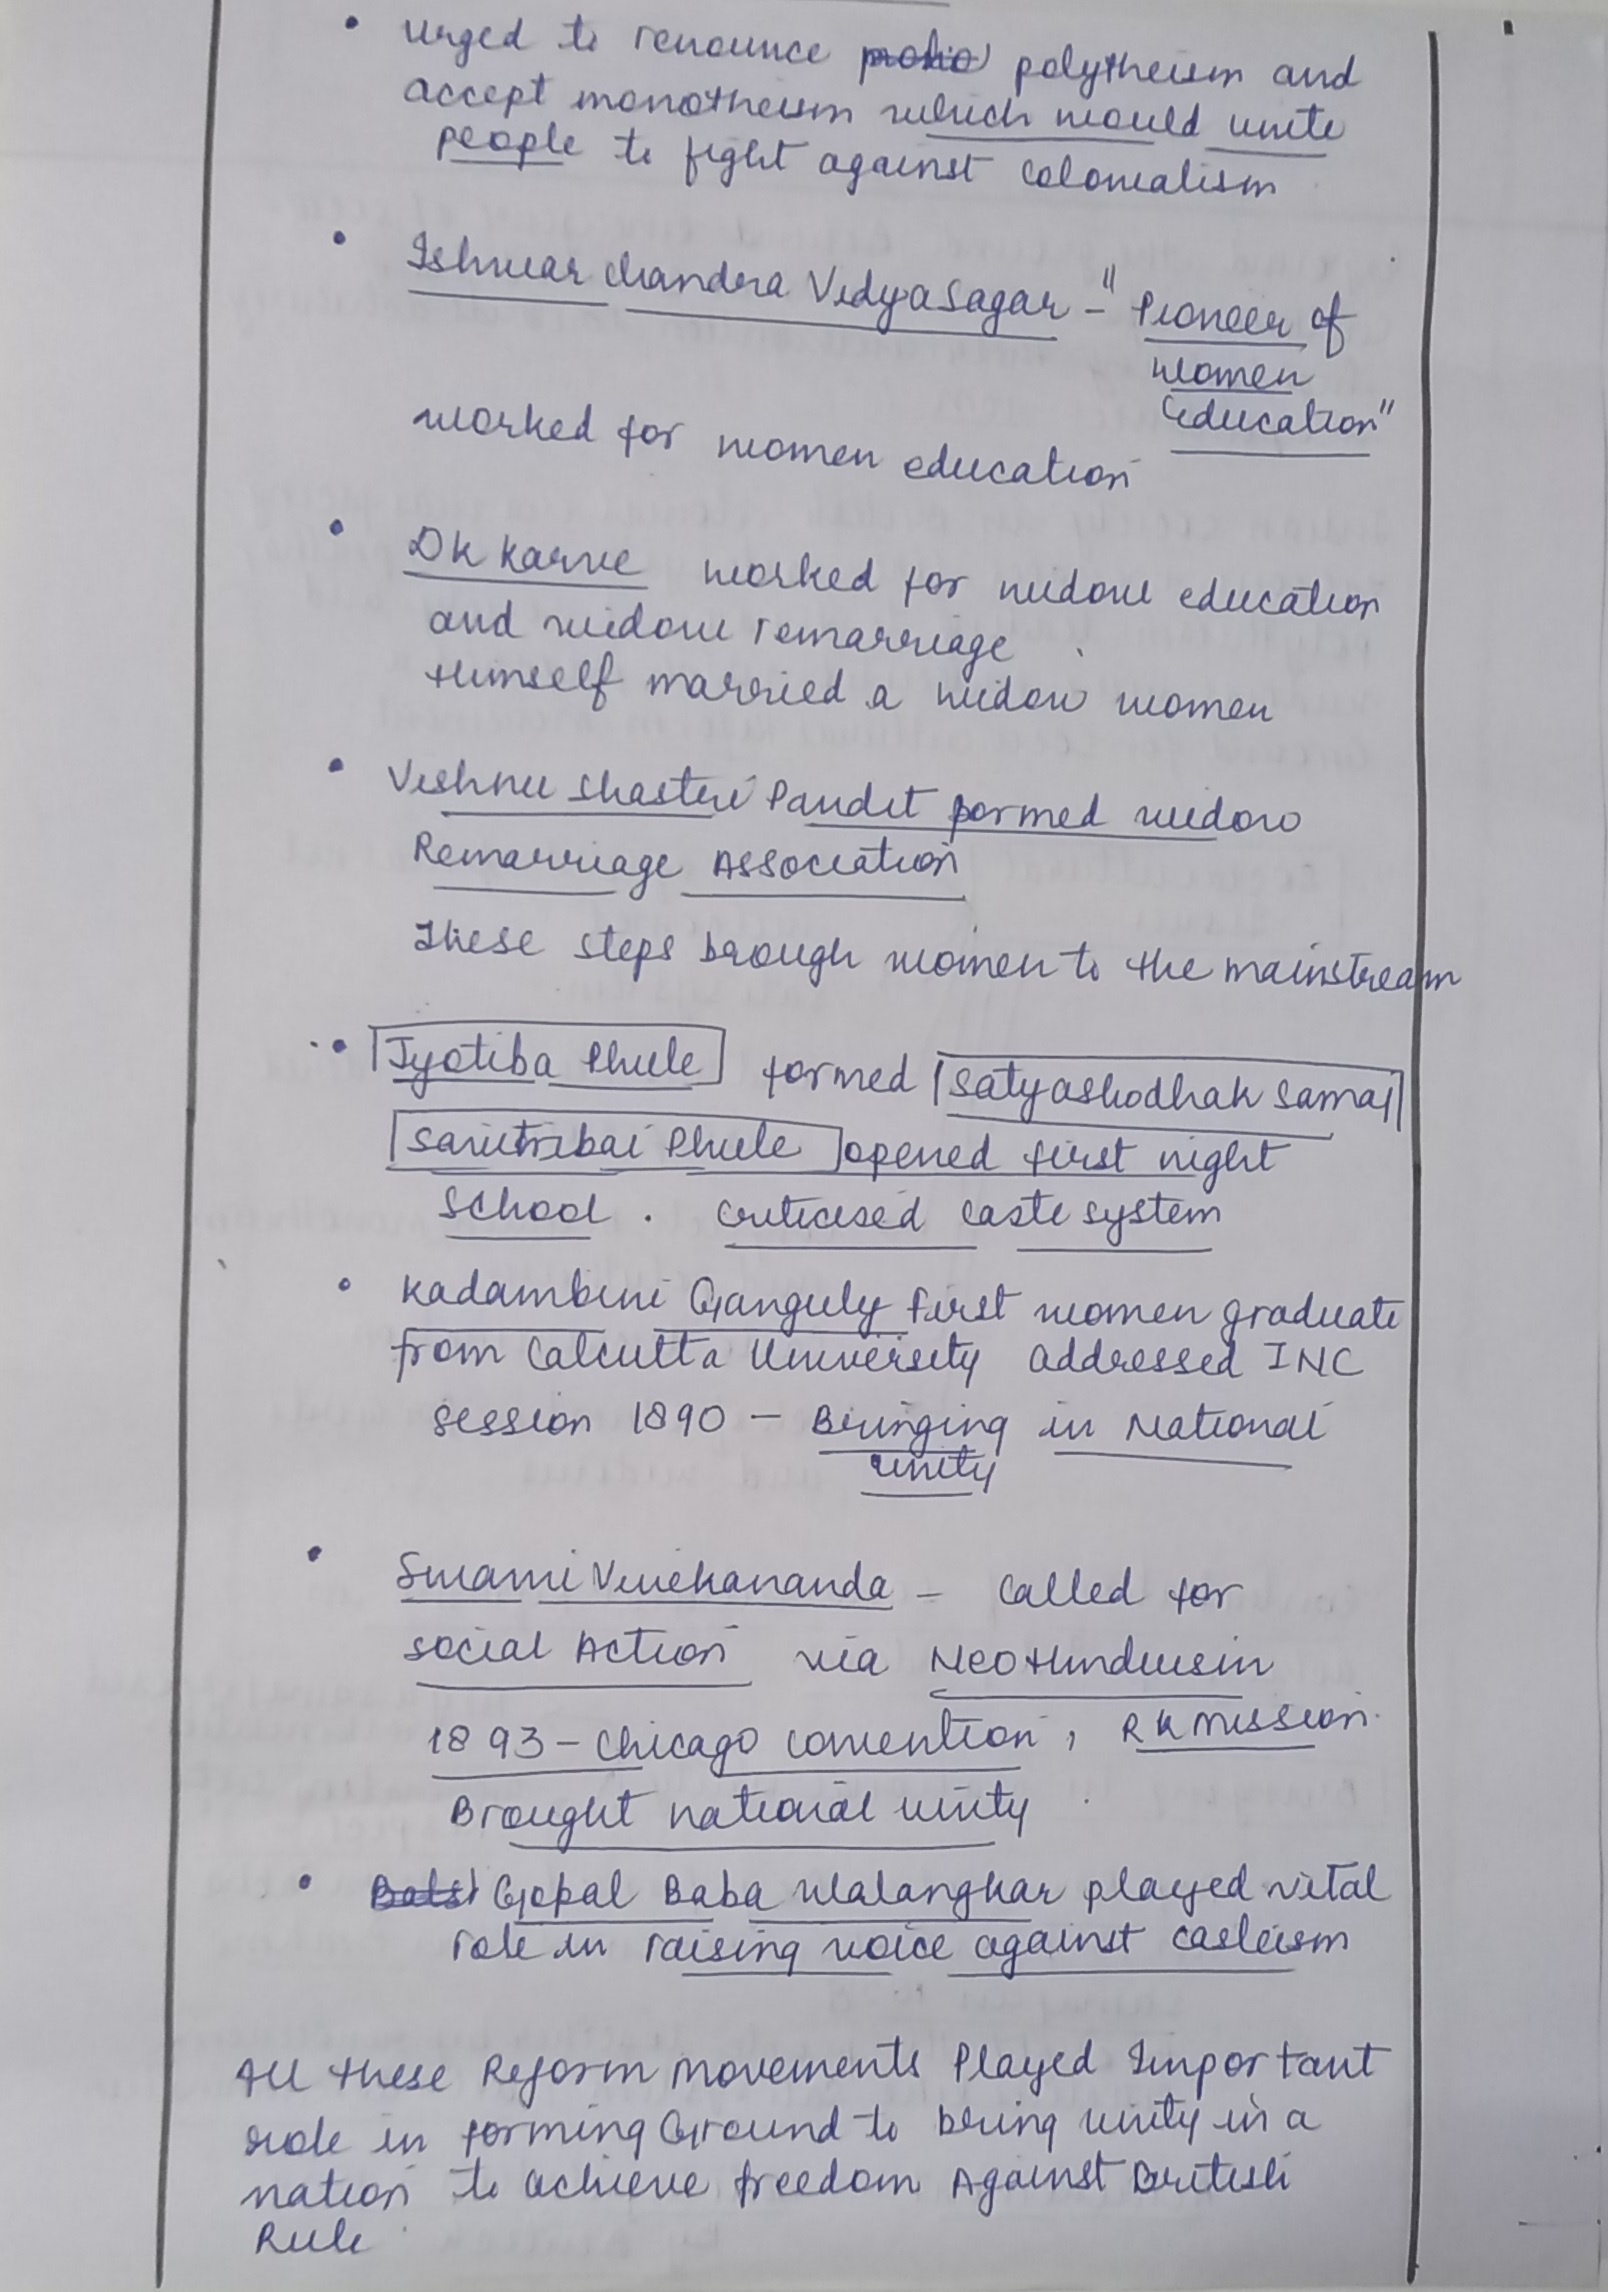 • urged to renounce polytheism and
accept monotheism which would unite
people to fight against colonialism
• Ishwar Chandra Vidyasagar - "Pioneer of
women
education"
worked for women education
• DK Karve worked for widow education
and widow remarriage
Himself married a widow women
• Vishnu Shastri Pandit formed widow
Remarriage Association
These steps brough women to the mainstream
• Jyotiba Phule formed Satyashodhak Samaj
Savitribai Phule opened first night
School. criticised caste system
• Kadambini Ganguly first women graduate
from Calcutta University addressed INC
session 1890 - Bringing in National
unity
• Swami Vivekananda - called for
social Action via Neo Hinduism
1893 - Chicago convention, RK Mission.
Brought national unity
• Gopal Baba Walangkar played vital
role in raising voice against casteism
All these Reform movements Played Important
role in forming Ground to bring unity in a
nation to achieve freedom Against British
Rule